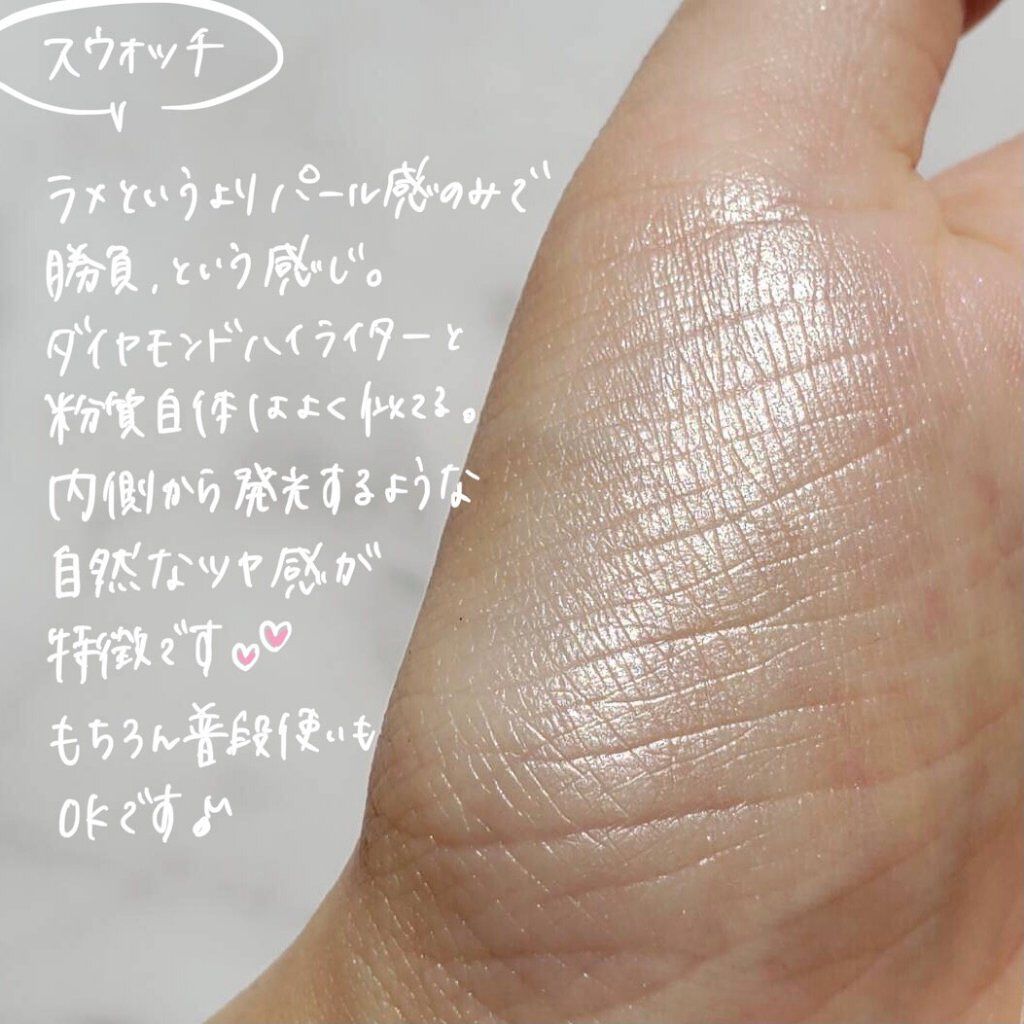 スウォッチ
ラメというよりパール感のみで
勝負、という感じ。
ダイヤモンドハイライターと
粉質自体はよく似てる。
内側から発光するような
自然なツヤ感が
特徴です
もちろん普段使いも
OKです♪